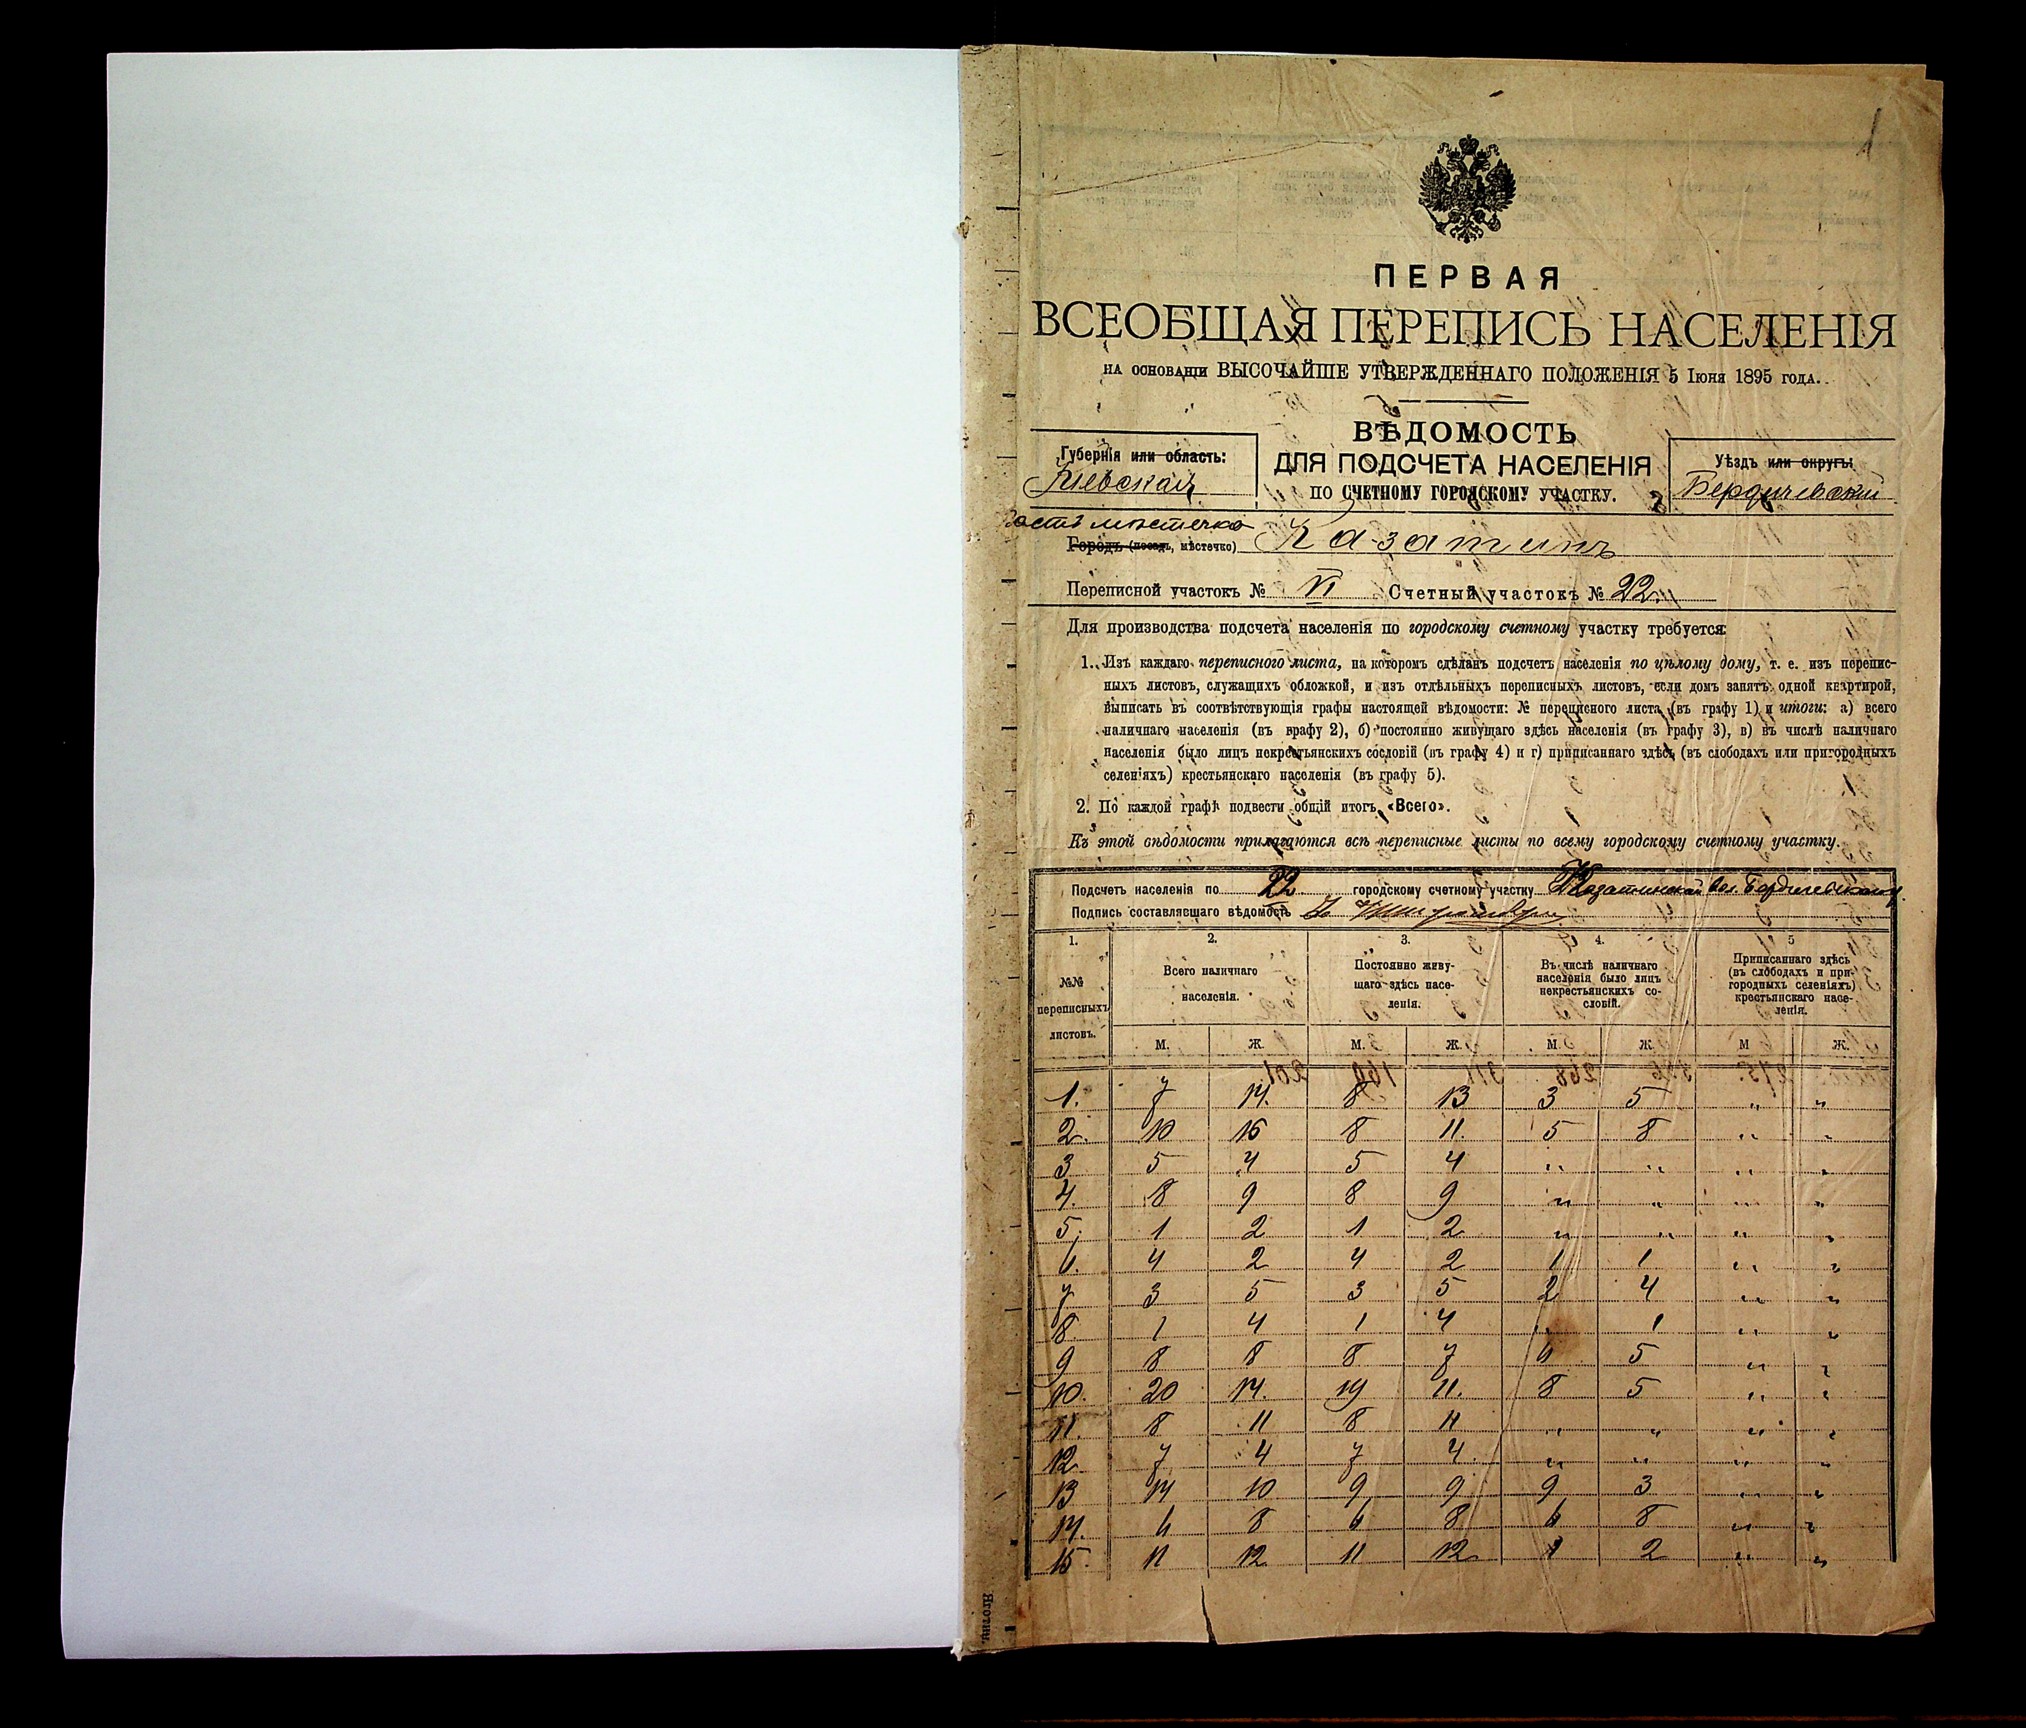 1
ПЕРВАЯ
ВСЕОБЩАЯ ПЕРЕПИСЬ НАСЕЛЕНІЯ
НА ОСНОВАНІИ ВЫСОЧАЙШЕ УТВЕРЖДЕННАГО ПОЛОЖЕНІЯ 5 ІЮНЯ 1895 ГОДА.
ВѢДОМОСТЬ
ДЛЯ ПОДСЧЕТА НАСЕЛЕНІЯ
ПО СЧЕТНОМУ ГОРОДСКОМУ УЧАСТКУ.
Губернія или область:
Кіевская
Уѣздъ или округъ:
Бердичевскій
часть мѣстечка
Городъ (посадъ, мѣстечко) Казатинъ
Переписной участокъ № VI Счетный участокъ № 22.
Для производства подсчета населенія по городскому счетному участку требуется:
1. Изъ каждаго переписного листа, на которомъ сдѣланъ подсчетъ населенія по цѣлому дому, т. е. изъ перепис-
ныхъ листовъ, служащихъ обложкой, и изъ отдѣльныхъ переписныхъ листовъ, если домъ занятъ одной квартирой,
выписать въ соотвѣтствующія графы настоящей вѣдомости: № переписного листа (въ графу 1) и итоги: а) всего
наличнаго населенія (въ графу 2), б) постоянно живущаго здѣсь населенія (въ графу 3), в) въ числѣ наличнаго
населенія было лицъ некрестьянскихъ сословій (въ графу 4) и г) приписаннаго здѣсь (въ слободахъ или пригородныхъ
селеніяхъ) крестьянскаго населенія (въ графу 5).
2. По каждой графѣ подвести общій итогъ «Всего».
Къ этой вѣдомости прилагаются всѣ переписные листы по всему городскому счетному участку.
Подсчетъ населенія по 22 городскому счетному участку Казатинской вол. Бердичевскаго у.
Подпись составлявшаго вѣдомость
1. 2. 3. 4. 5
№№ переписныхъ листовъ.
Всего наличнаго населенія.
Постоянно живу-
щаго здѣсь насе-
ленія.
Въ числѣ наличнаго
населенія было лицъ
некрестьянскихъ со-
словій.
Приписаннаго здѣсь
(въ слободахъ и при-
городныхъ селеніяхъ)
крестьянскаго насе-
ленія.
М. Ж. М. Ж. М. Ж. М Ж.
1. 7 14. 8 13 3 5 " "
2. 10 16 8 11. 5 8 " "
3 5 4 5 4 " " " "
4. 8 9 8 9 " " " "
5. 1 2 1 2 " " " "
6. 4 2 4 2 1 1 " "
7 3 5 3 5 2 4 " "
8 1 4 1 4 " 1 " "
9 8 8 8 7 6 5 " "
10. 20 14. 19 11. 8 5 " "
11. 8 11 8 11 " " " "
12 7 4 7 4. " " " "
13 14 10 9 9 9 3 " "
14. 6 8 6 8 6 8 " "
15. 11 12 11 12 1 2 " "